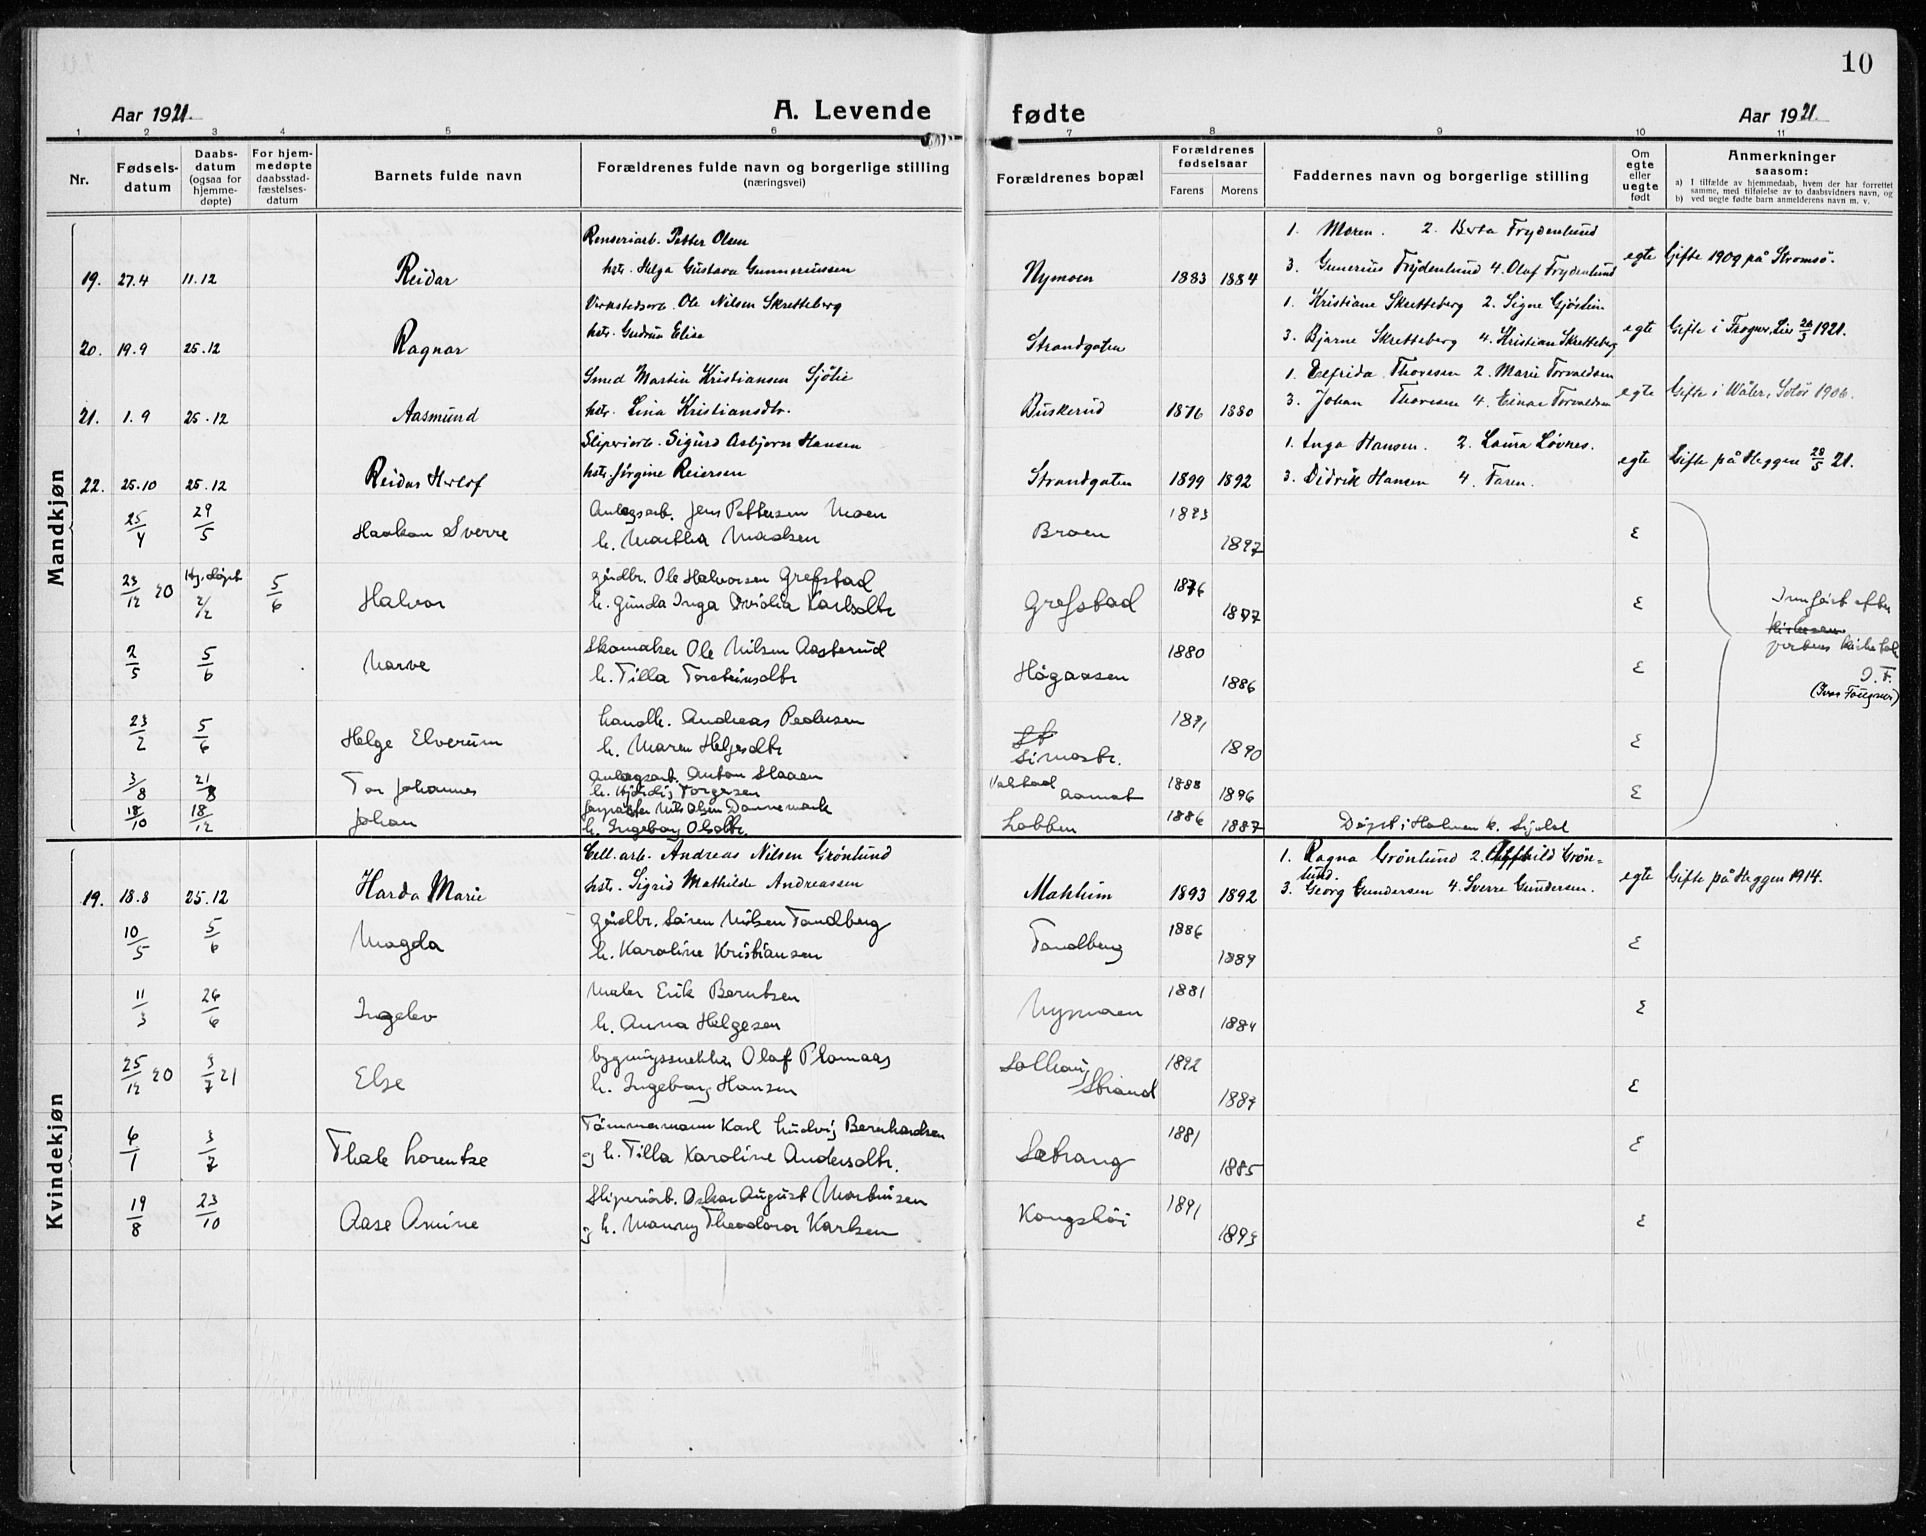 10
Aar 1921.
A. Levende fødte
Aar 1921.
1 2 3 4 5 6 7 8 9 10 11
Nr.
Fødsels-
datum
Daabs-
datum
(ogsaa for
hjemme-
døpte)
For hjem-
medøpte
daabsstad-
fæstelses-
datum
Barnets fulde navn
Forældrenes fulde navn og borgerlige stilling
(næringsvei)
Forældrenes bopæl
Forældrenes
fødselsaar
Farens Morens
Faddernes navn og borgerlige stilling
Om
egte
eller
uegte
født
Anmerkninger
saasom:
a) I tilfælde av hjemmedaab, hvem der har forrettet
samme, med tilføielse av to daabsvidners navn, og
b) ved uegte fødte barn anmelderens navn m. v.
Mandkjøn
Renseriarb. Petter Olsen 1. Moren. 2. Berta Frydenlund
19. 27.4 11.12 Reidar hstr. Helga Gustava Gunneriussen Nymoen 1883 1884 3. Gunerius Frydenlund 4. Olaf Frydenlund egte Gifte 1909 på Strømsø.
Verkstedsarb. Ole Nilsen Skretteberg 1. Kristiane Skretteberg 2. Signe
20. 19.9 25.12 Ragnar hstr. Gudrun Elise Strandgaten 3. Bjarne Skretteberg 4. Kristian Skretteberg egte Gifte i Frogner, Lier 20/3 1921.
Smed Martin Kristiansen Sjølie 1. Elfrida Thoresen 2. Marie Torvaldsen
21. 1.9 25.12 Aasmund hstr. Lina Kristiansdtr. Buskerud 1876 1880 3. Johan Thoresen 4. Einar Torvaldsen egte Gifte i Våler, Solør 1906.
Sliperiarb. Sigurd Asbjørn Hansen 1. Inga Hansen. 2. Laura Løvnes.
22. 25.10 25.12 Reidar Herlof hstr. Jørgine Reiersen Strandgaten 1899 1892 3. Didrik Hansen 4. Faren. egte Gifte på Heggen 28/5 21.
25/4 29/5 Haakon Sverre Anlegsarb. Jens Pettersen Moen Broen 1893 E
h. Martha Madsen 1897
23/12 20 Hj.døpt 2/2 5/6 Halvor gårdbr. Ole Halvorsen Grefstad Grefstad 1876 E Innført efter
h. Gunda Inga Ovidia Karlsdtr 1877
2/5 5/6 Narve Skomaker Ole Nilsen Aasterud Høgaasen 1880 E
h. Tilla Torsteinsdtr 1886
I. F.
23/2 5/6 Helge Elverum handl. Andreas Pedersen St Simostr. 1891 E
h. Maren Helgesdtr 1890
3/8 21/8 Tor Johannes Anlegsarb. Anton Haaen Aamot 1888 E
h. Torgersen 1896
18/10 18/12 Johan Nils Olsen Dannemark Lobben 1886 Døpt i Holmen k. Sigdal
h. Ingeborg Olsdtr. 1887
Kvindekjøn
Cell.arb. Andreas Nilsen Grønlund 1. Ragna Grønlund 2. Grøn-
lund.
19. 18.8 25.12 Harda Marie hstr. Sigrid Mathilde Andreassen Mahlum 1893 1892 3. Georg Gundersen 4. Sverre Gundersen. egte Gifte på Heggen 1914.
10/5 5/6 Magda gårdbr. Søren Nilsen Tandberg Tandberg 1886 E
h. Karoline Kristiansen 1889
11/3 26/6 Ingelev Maler Erik Berntsen Nymoen 1881 E
h. Anna Helgesen 1884
25/12 20 3/7 21 Else bygningssnekker Olaf Plomaas Solhaug Strand 1892 E
h. Ingeborg Hansen 1889
6/1 3/7 Thale Lorentze Tømmermann Karl Ludvig Bernhardsen Sætrang 1881 E
og h. Tilla Karoline Andersdtr. 1885
19/8 23/10 Aase Amine Sliperiarb. Oskar August Martinsen Kongshøi 1891 E
og h. Manny Theodora Karlsen 1893